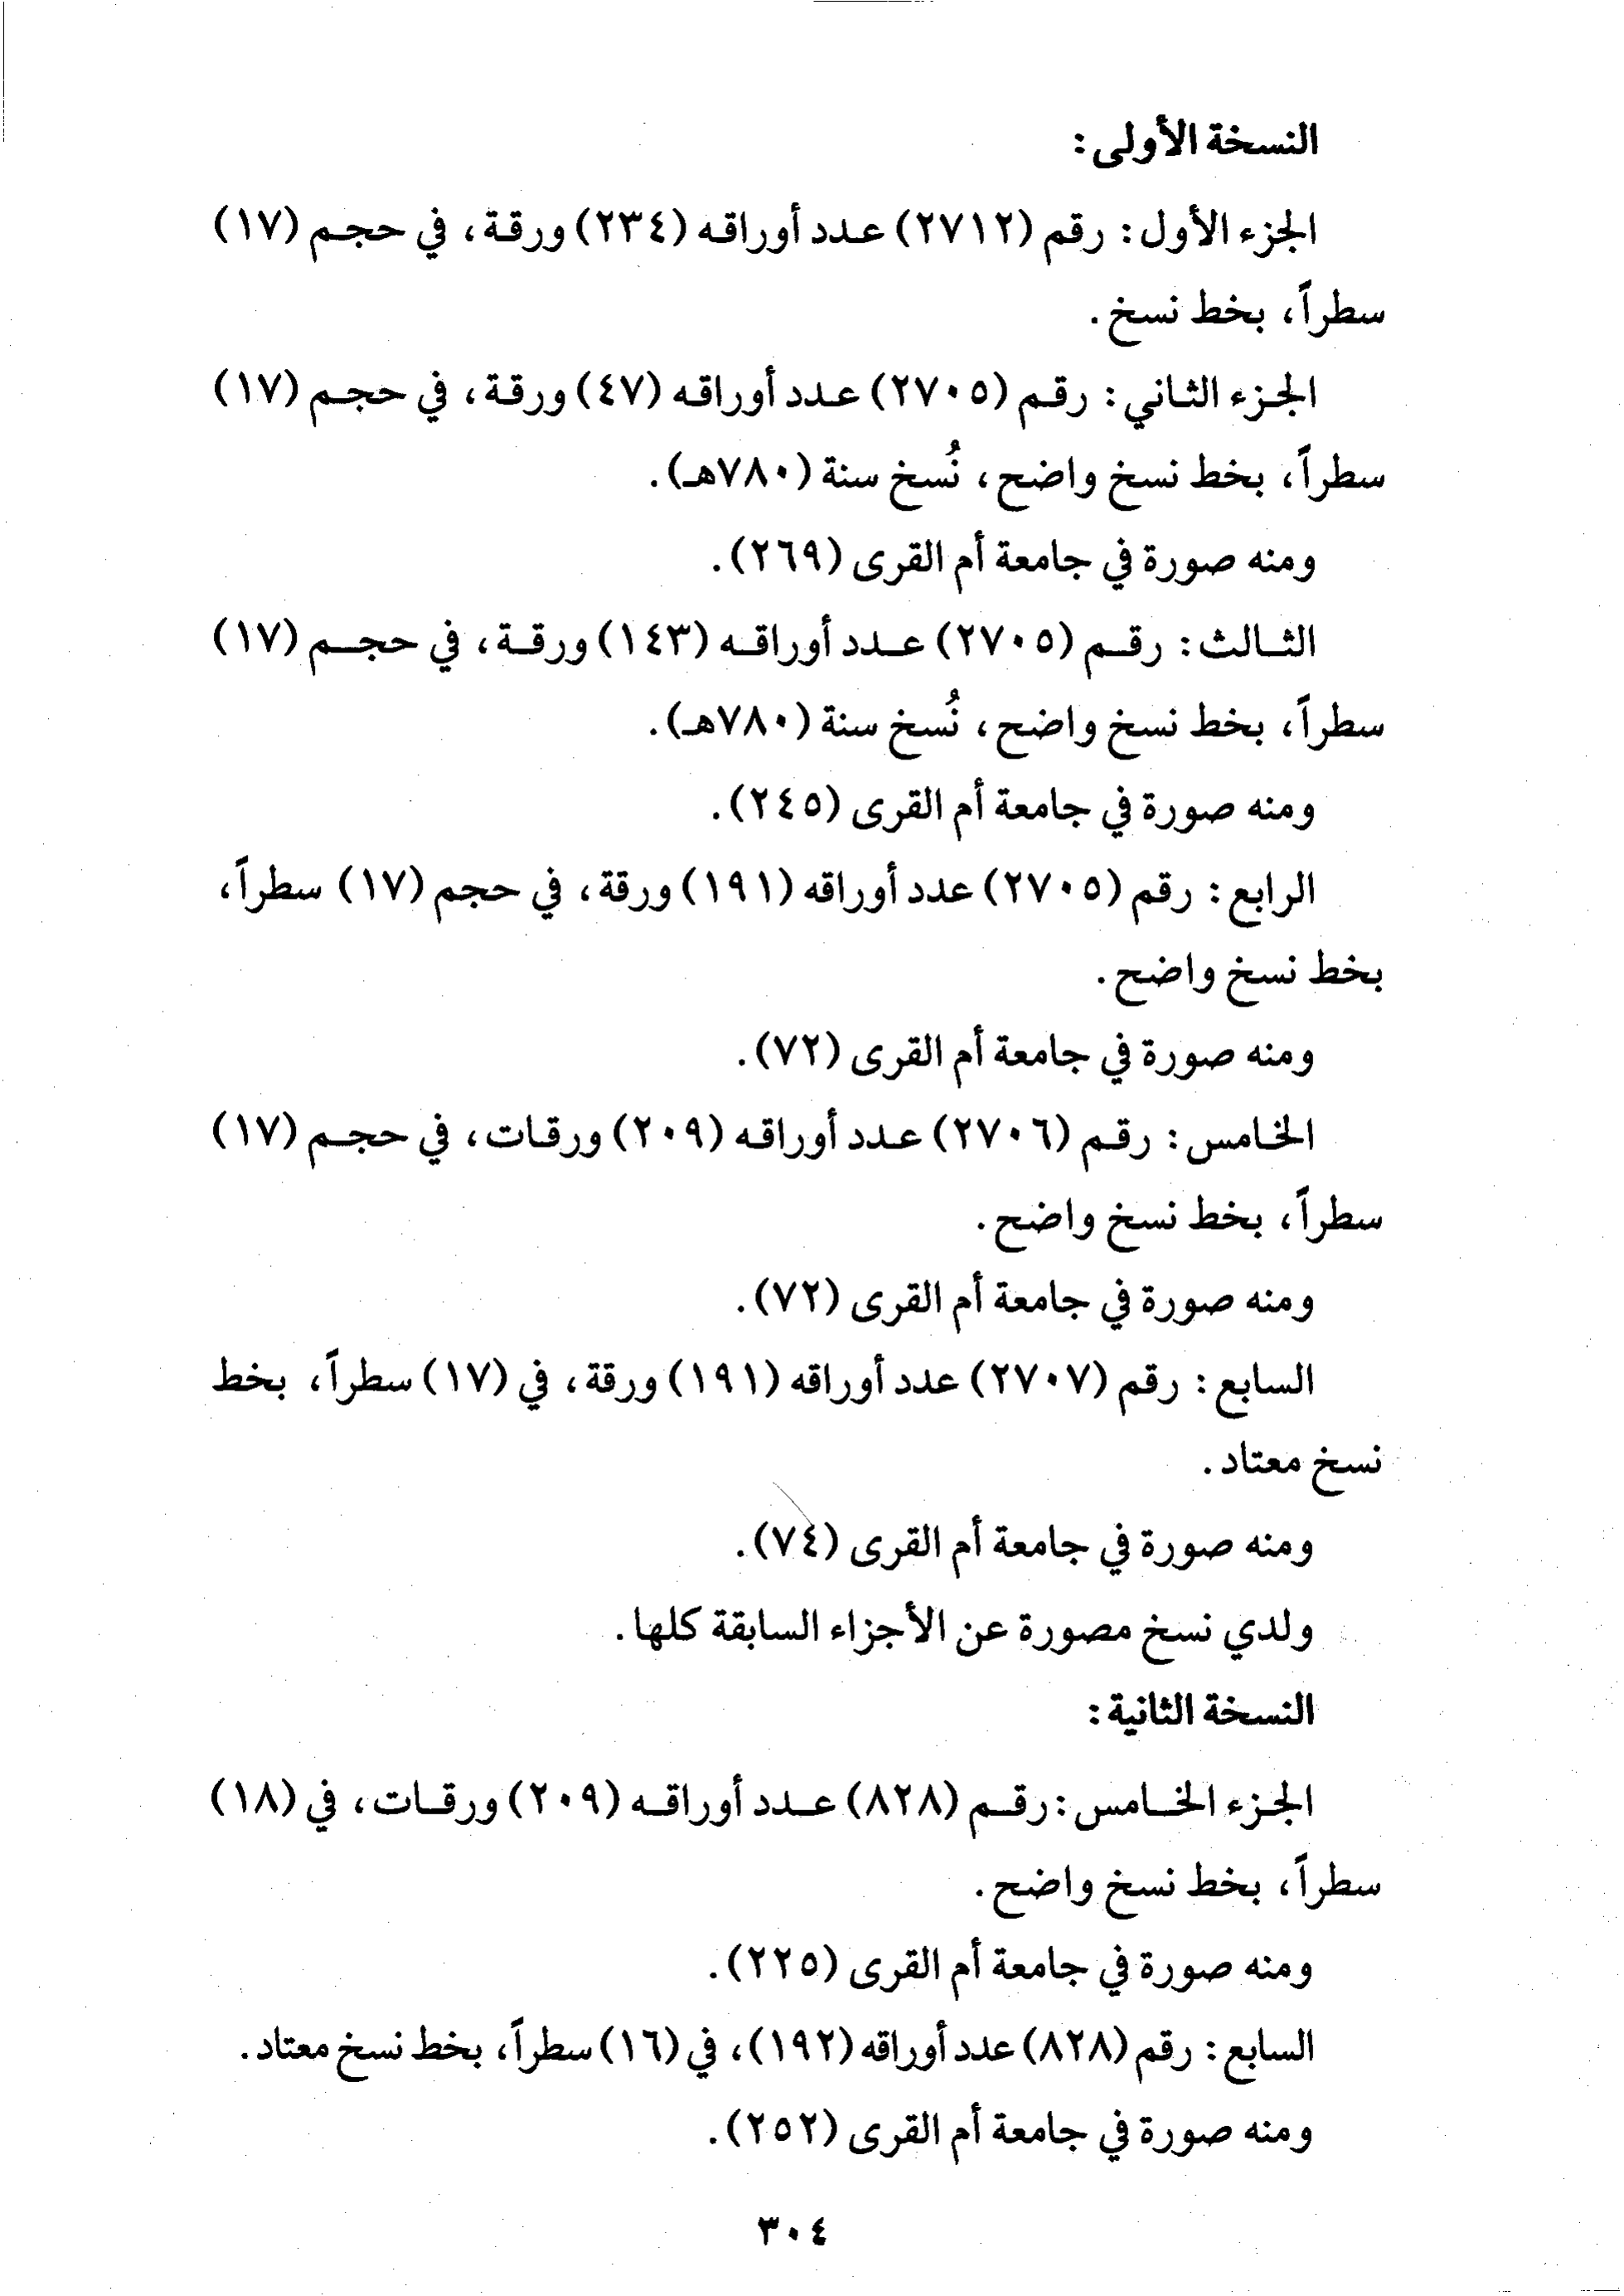 النسخة الأولى:
الجزء الأول: رقم (٢٧١٢) عدد أوراقه (٢٣٤) ورقة، في حجم (١٧)
سطراً، بخط نسخ.
الجزء الثاني: رقم (٢٧٠٥) عدد أوراقه (٤٧) ورقة، في حجم (١٧)
سطراً، بخط نسخ واضح، نُسخ سنة (٧٨٠هـ).
ومنه صورة في جامعة أم القرى (٢٦٩).
الثالث: رقم (٢٧٠٥) عدد أوراقه (١٤٣) ورقة، في حجم (١٧)
سطراً، بخط نسخ واضح، نُسخ سنة (٧٨٠هـ).
ومنه صورة في جامعة أم القرى (٢٤٥).
الرابع: رقم (٢٧٠٥) عدد أوراقه (١٩١) ورقة، في حجم (١٧) سطراً،
بخط نسخ واضح.
ومنه صورة في جامعة أم القرى (٧٢).
الخامس: رقم (٢٧٠٦) عدد أوراقه (٢٠٩) ورقات، في حجم (١٧)
سطراً، بخط نسخ واضح.
ومنه صورة في جامعة أم القرى (٧٢).
السابع: رقم (٢٧٠٧) عدد أوراقه (١٩١) ورقة، في (١٧) سطراً، بخط
نسخ معتاد.
ومنه صورة في جامعة أم القرى (٧٤).
ولدي نسخ مصورة عن الأجزاء السابقة كلها.
النسخة الثانية:
الجزء الخامس: رقم (٨٢٨) عدد أوراقه (٢٠٩) ورقات، في (١٨)
سطراً، بخط نسخ واضح.
ومنه صورة في جامعة أم القرى (٢٢٥).
السابع: رقم (٨٢٨) عدد أوراقه (١٩٢)، في (١٦) سطراً، بخط نسخ معتاد.
ومنه صورة في جامعة أم القرى (٢٥٢).
٣٠٤